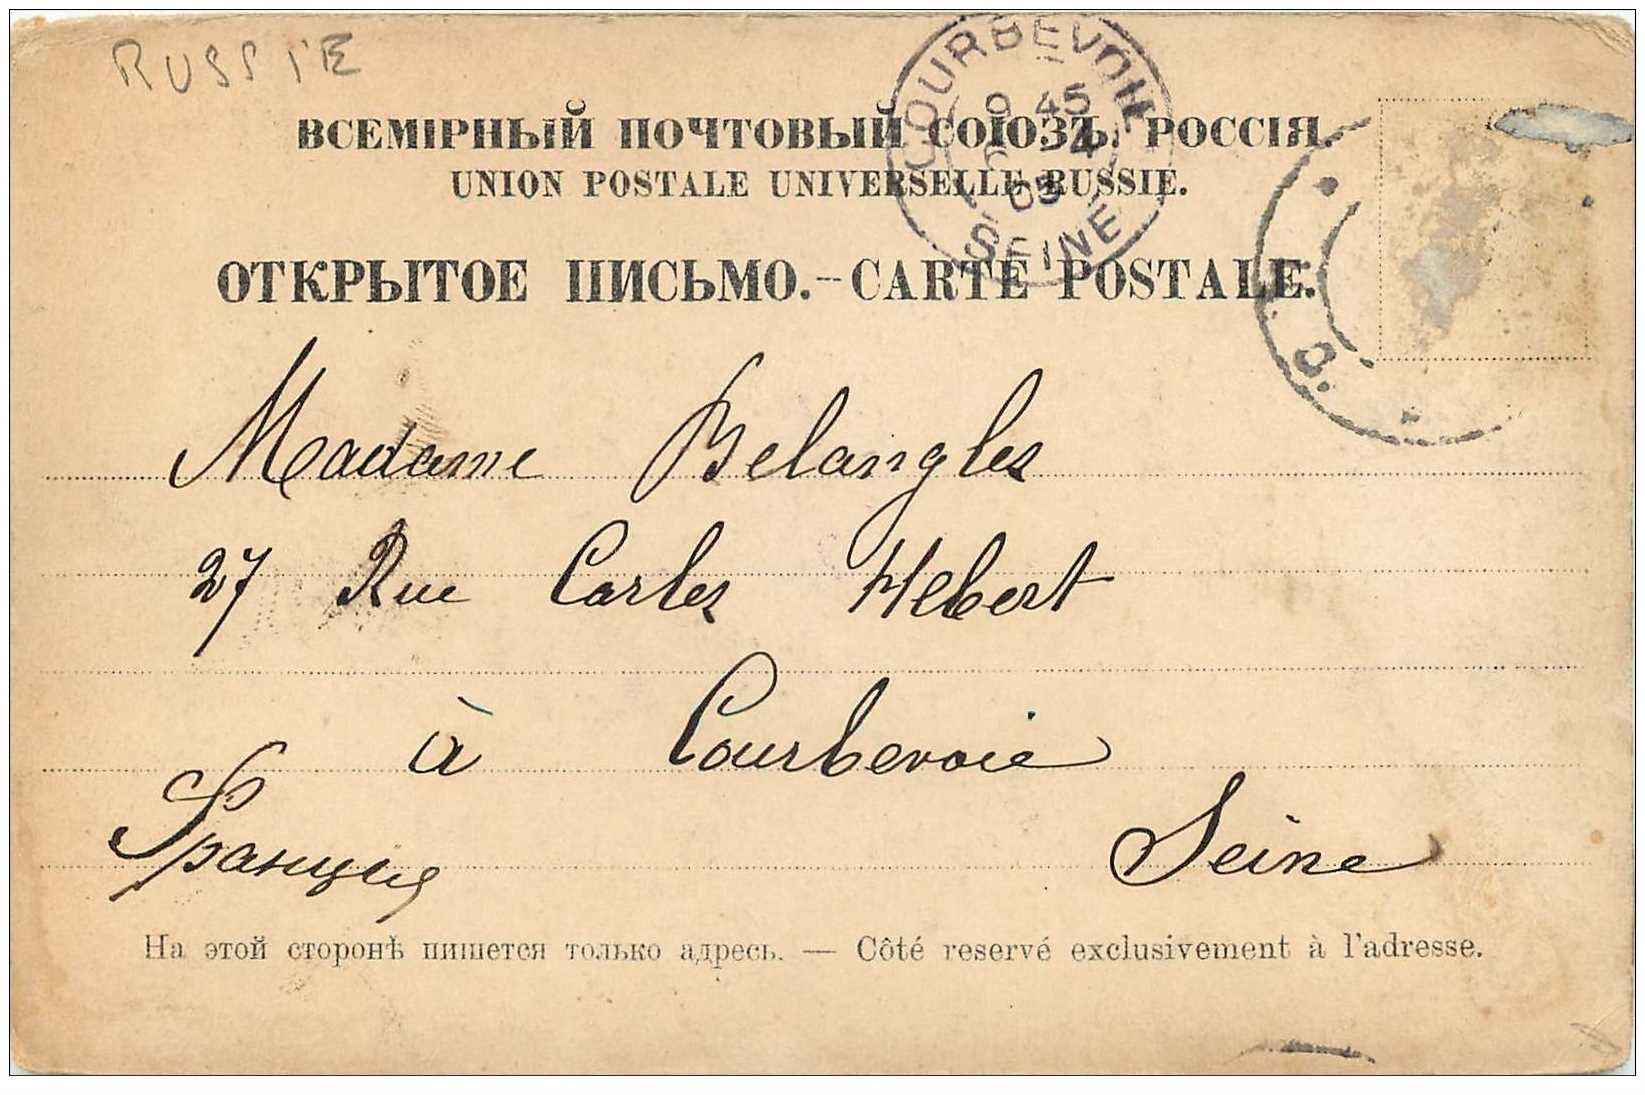 RUSSIE
COURBEVOIE
9 45
6 -4
05
SEINE
ВСЕМІРНЫЙ ПОЧТОВЫЙ СОЮЗЪ. РОССІЯ.
UNION POSTALE UNIVERSELLE. RUSSIE.
ОТКРЫТОЕ ПИСЬМО.--CARTE POSTALE.
Madame Belangles
27 Rue Carles Hebert
à Courbevoie
Seine
Франція
На этой сторонѣ пишется только адресъ. — Côté reservé exclusivement à l'adresse.